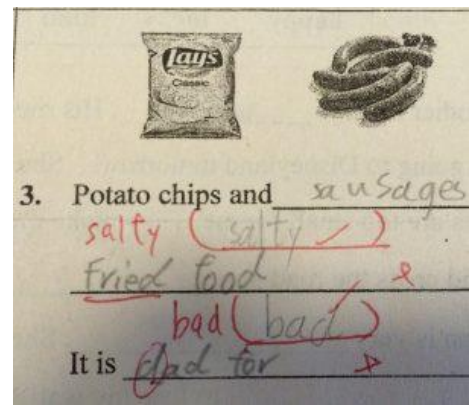 Lay's
Classic
3. Potato chips and sausages
salty (salty ✓)
Fried food
bad (bad ✓)
It is dad for